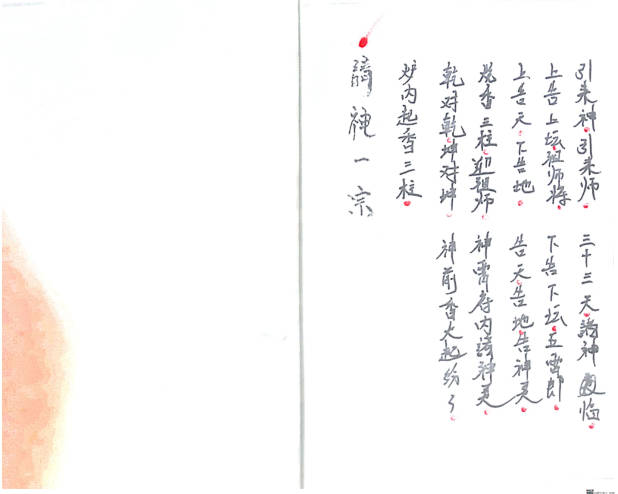 請神一宗
炉内起香三柱
乾对乾坤对坤 神前香火起纷了
发香三柱迎祖师 神霄府内請神灵
上告天下告地 告天告地告神灵
上告上坛祖师将 下告下坛五雷郎
引来神引来师 三十三天請神通临